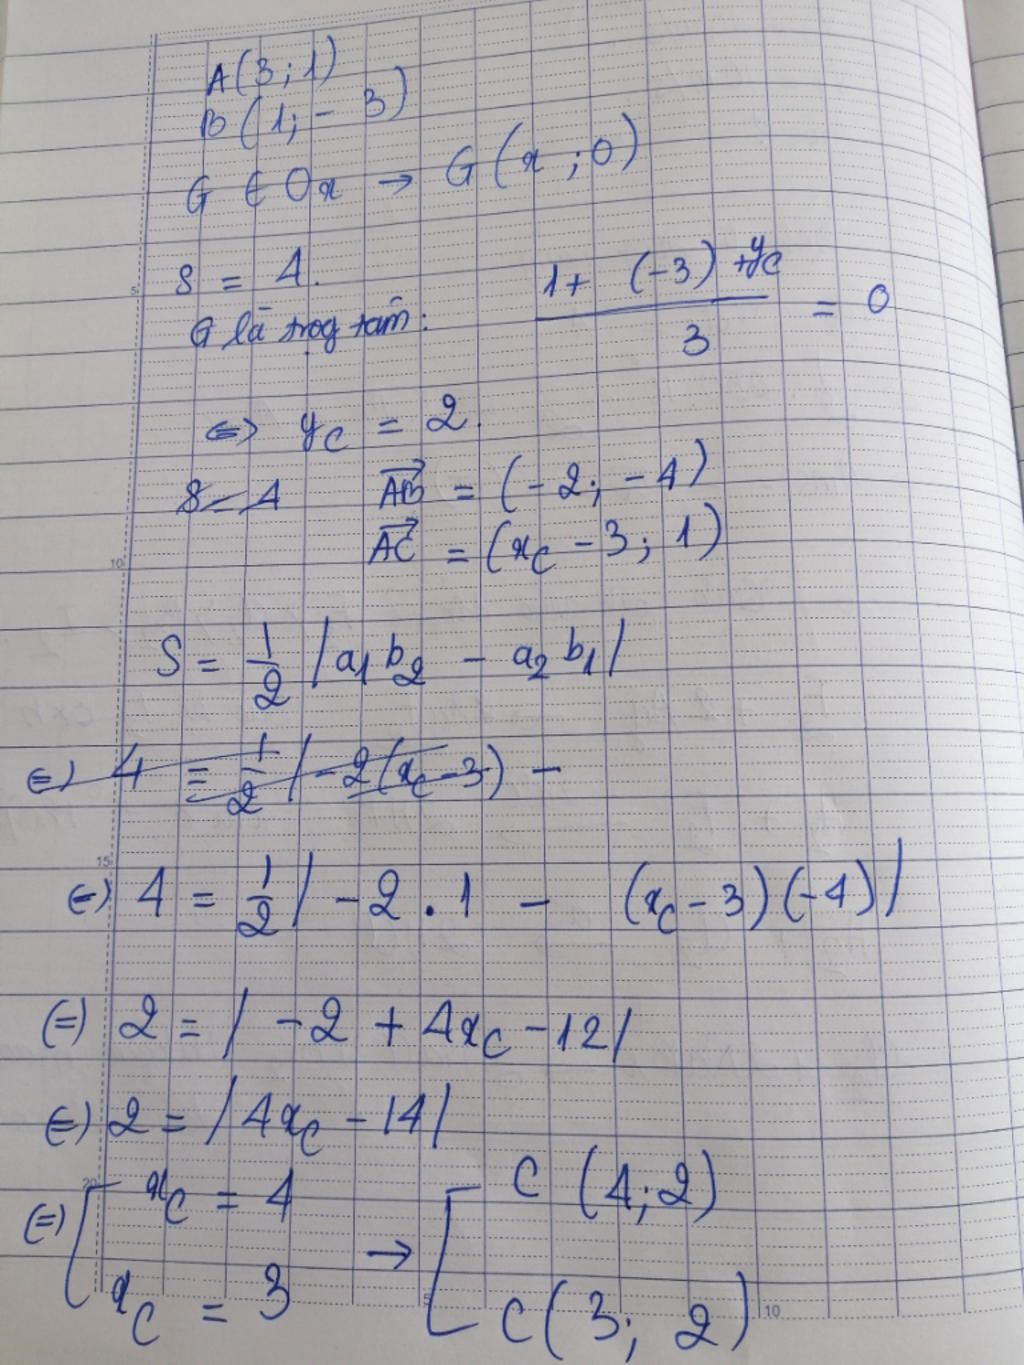 A(3;1)
B(1;-3)
G ∈ Ox → G(x;0)
S = 4.
G là trog tâm: (1 + (-3) + y_C)/3 = 0
<=> y_C = 2.
S = 4 AB→ = (-2; -4)
AC→ = (x_C - 3; 1)
S = 1/2 |a1 b2 - a2 b1|
<=> 4 = 1/2 |-2(x_C - 3) -
<=> 4 = 1/2 |-2 . 1 - (x_C - 3)(-4)|
<=> 2 = |-2 + 4x_C - 12|
<=> 2 = |4x_C - 14|
<=> [ x_C = 4 → [ C (4;2)
x_C = 3 C(3; 2)
5
10
15
20
5
10